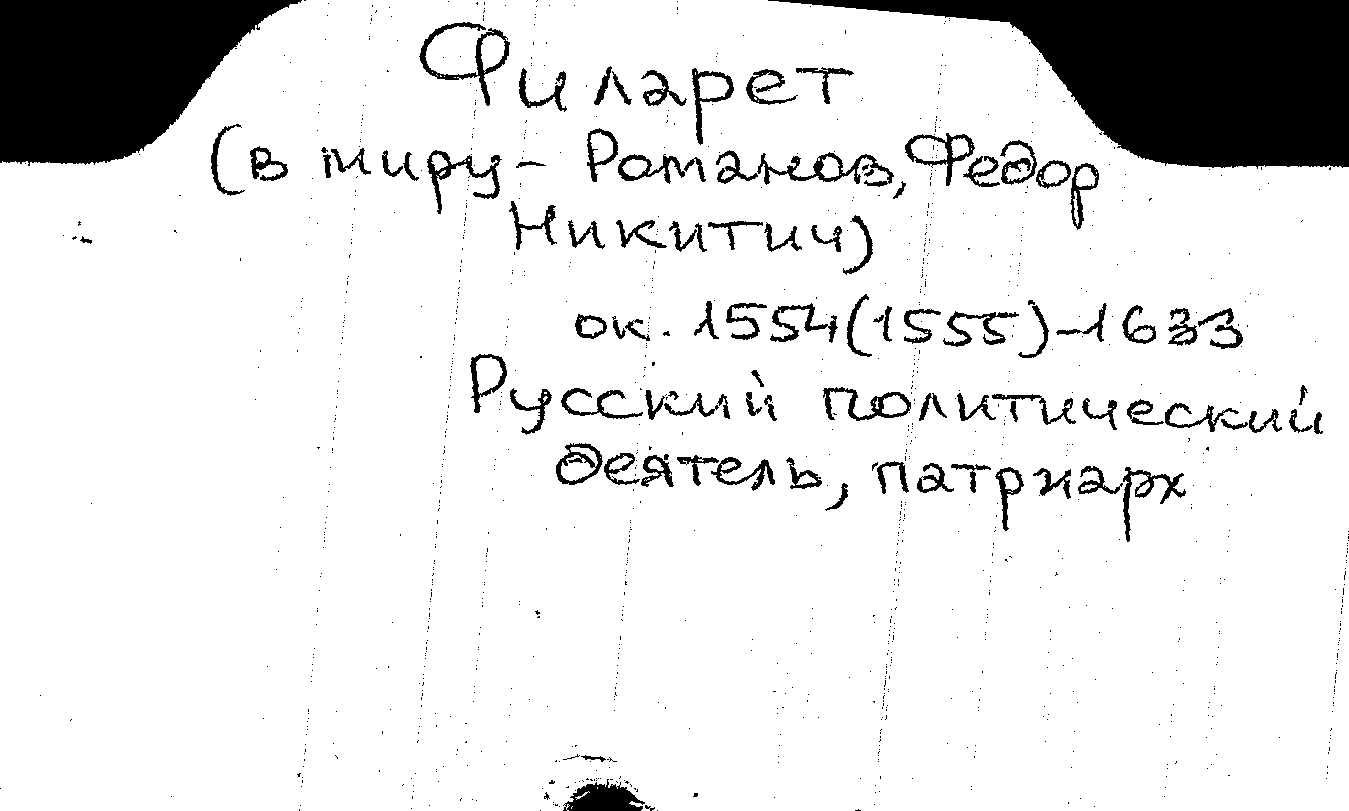 Филарет
(в миру - Романов, Федор
Никитич)
ок. 1554(1555)-1633
Русский политический
деятель, патриарх